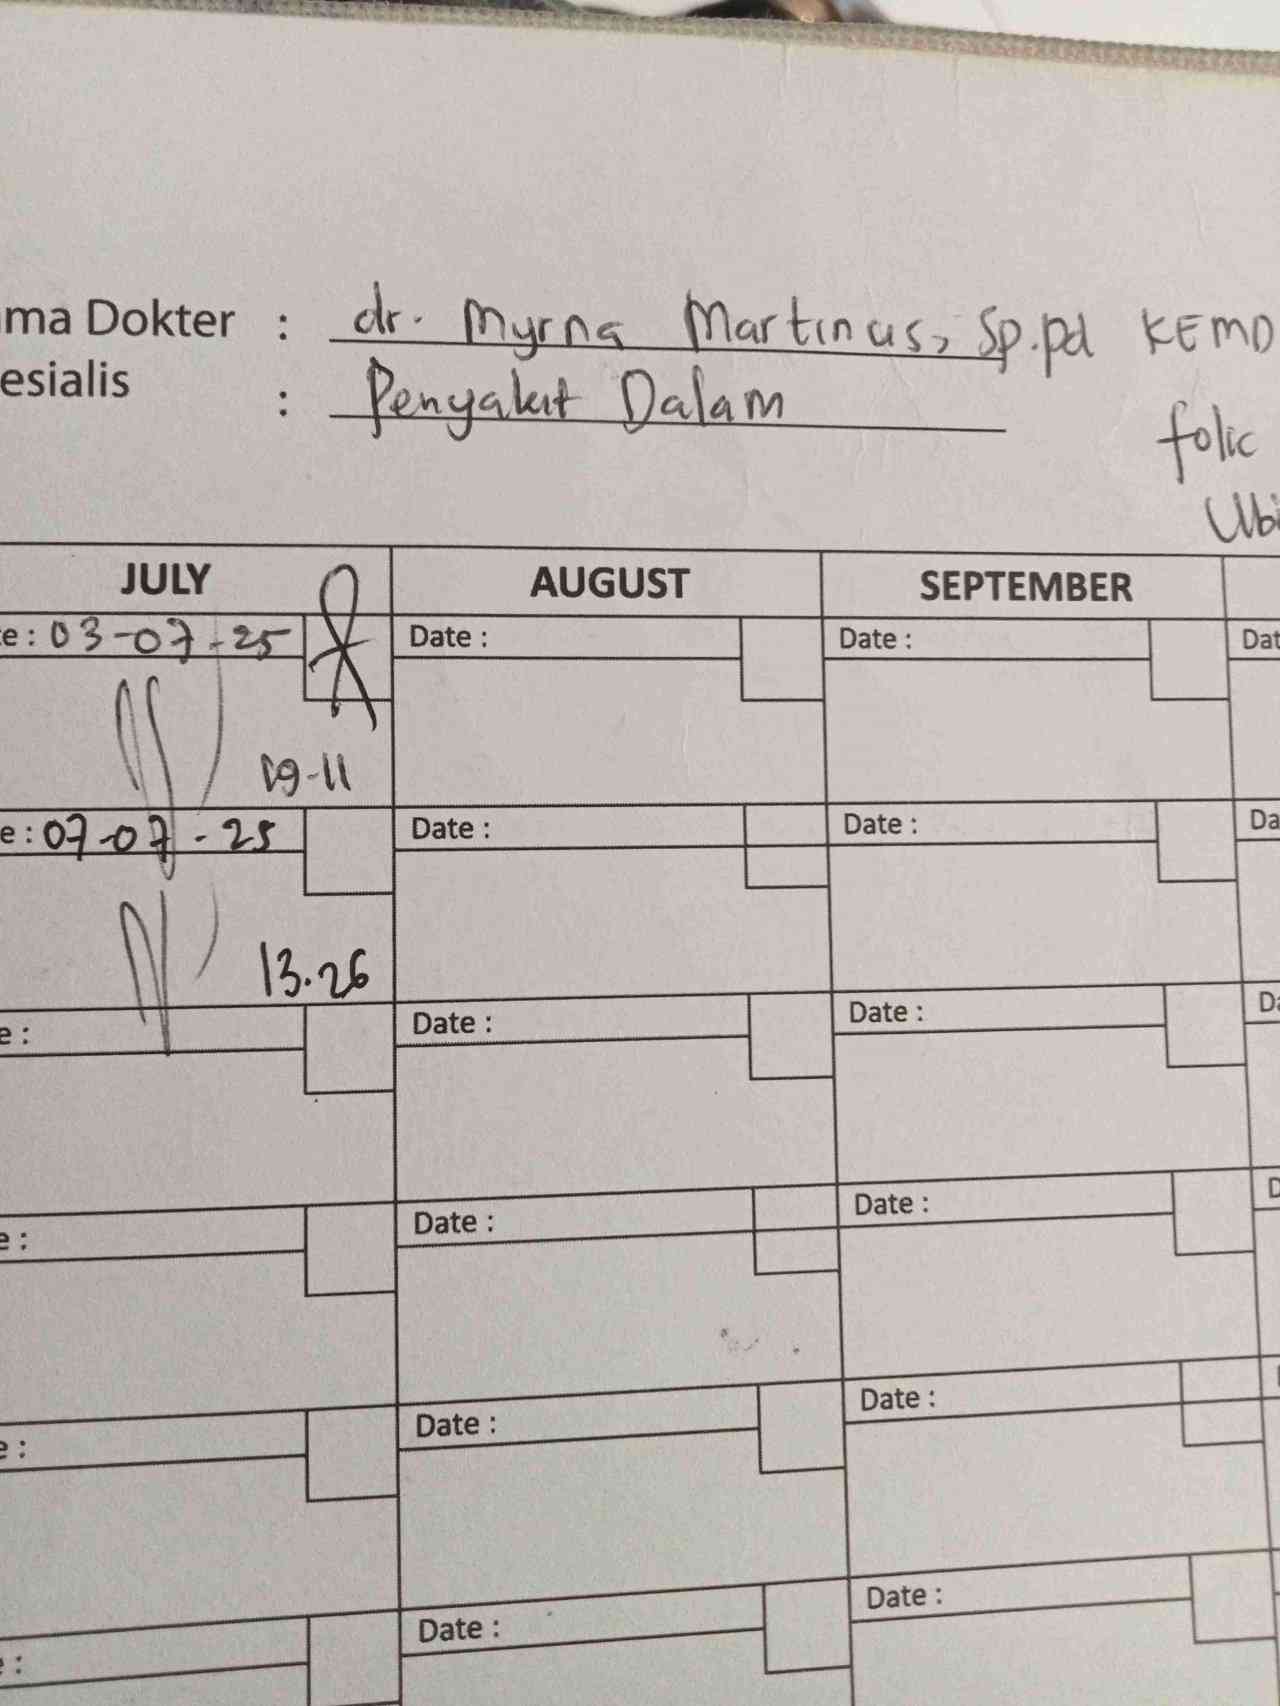 ma Dokter : dr. Myrna Martinus, Sp.pd KEMD
esialis : Penyakit Dalam
folic
Ubi
JULY AUGUST SEPTEMBER
e : 03-07-25 Date : Date : Dat
19-11
e : 07-07-25 Date : Date : Da
13.26
e : Date : Date : Da
e : Date : Date : D
e : Date : Date :
e : Date : Date :